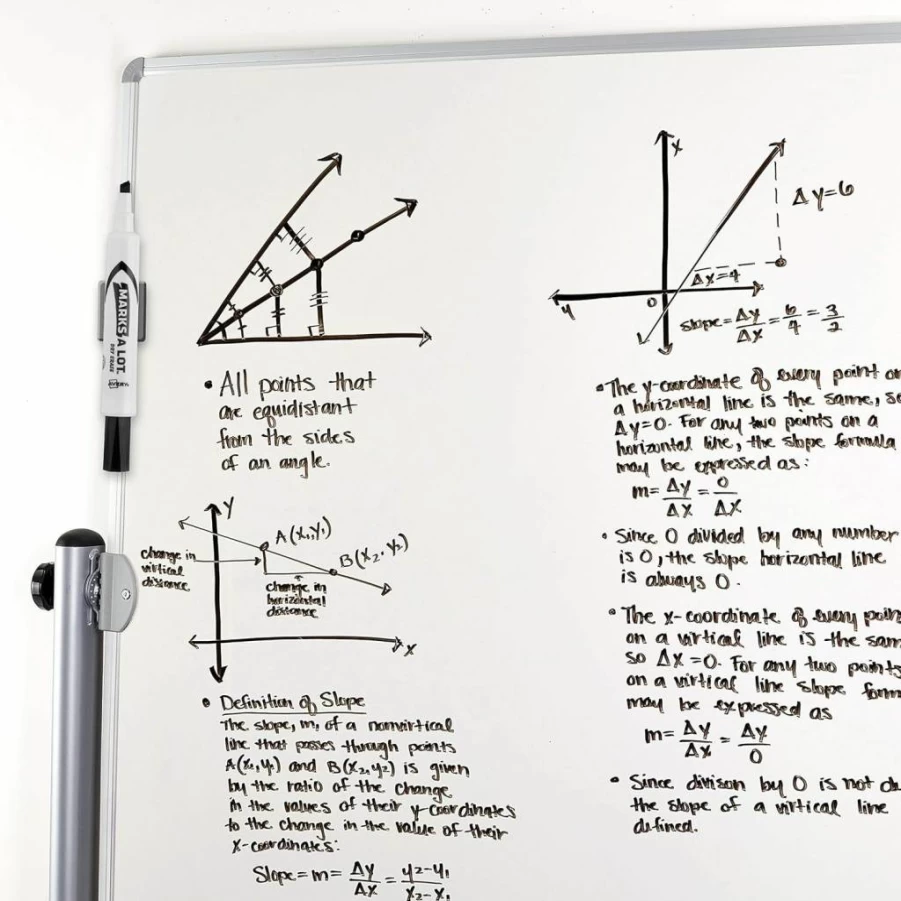 MARKS A LOT.
DRY ERASE
AVERY
• All points that
are equidistant
from the sides
of an angle.
Y
A(x₁,y₁)
B(x₂,y₂)
change in
virtical
distance
change in
horizontal
distance
X
• Definition of Slope
The slope, m, of a nonvirtical
line that passes through points
A(x₁,y₁) and B(x₂,y₂) is given
by the ratio of the change
in the values of their y-coordinates
to the change in the value of their
x-coordinates:
Slope = m = Δy/Δx = y₂-y₁/x₂-x₁
X
Δy=6
Δx=4
y
0
slope = Δy/Δx = 6/4 = 3/2
• The y-coordinate of every point on
a horizontal line is the same, so
Δy=0. For any two points on a
horizontal line, the slope formula
may be expressed as:
m = Δy/Δx = 0/Δx
• Since 0 divided by any number
is 0, the slope horizontal line
is always 0.
• The x-coordinate of every point
on a virtical line is the sam
so Δx=0. For any two points
on a virtical line slope form
may be expressed as
m = Δy/Δx = Δy/0
• Since divison by 0 is not de
the slope of a virtical line
defined.